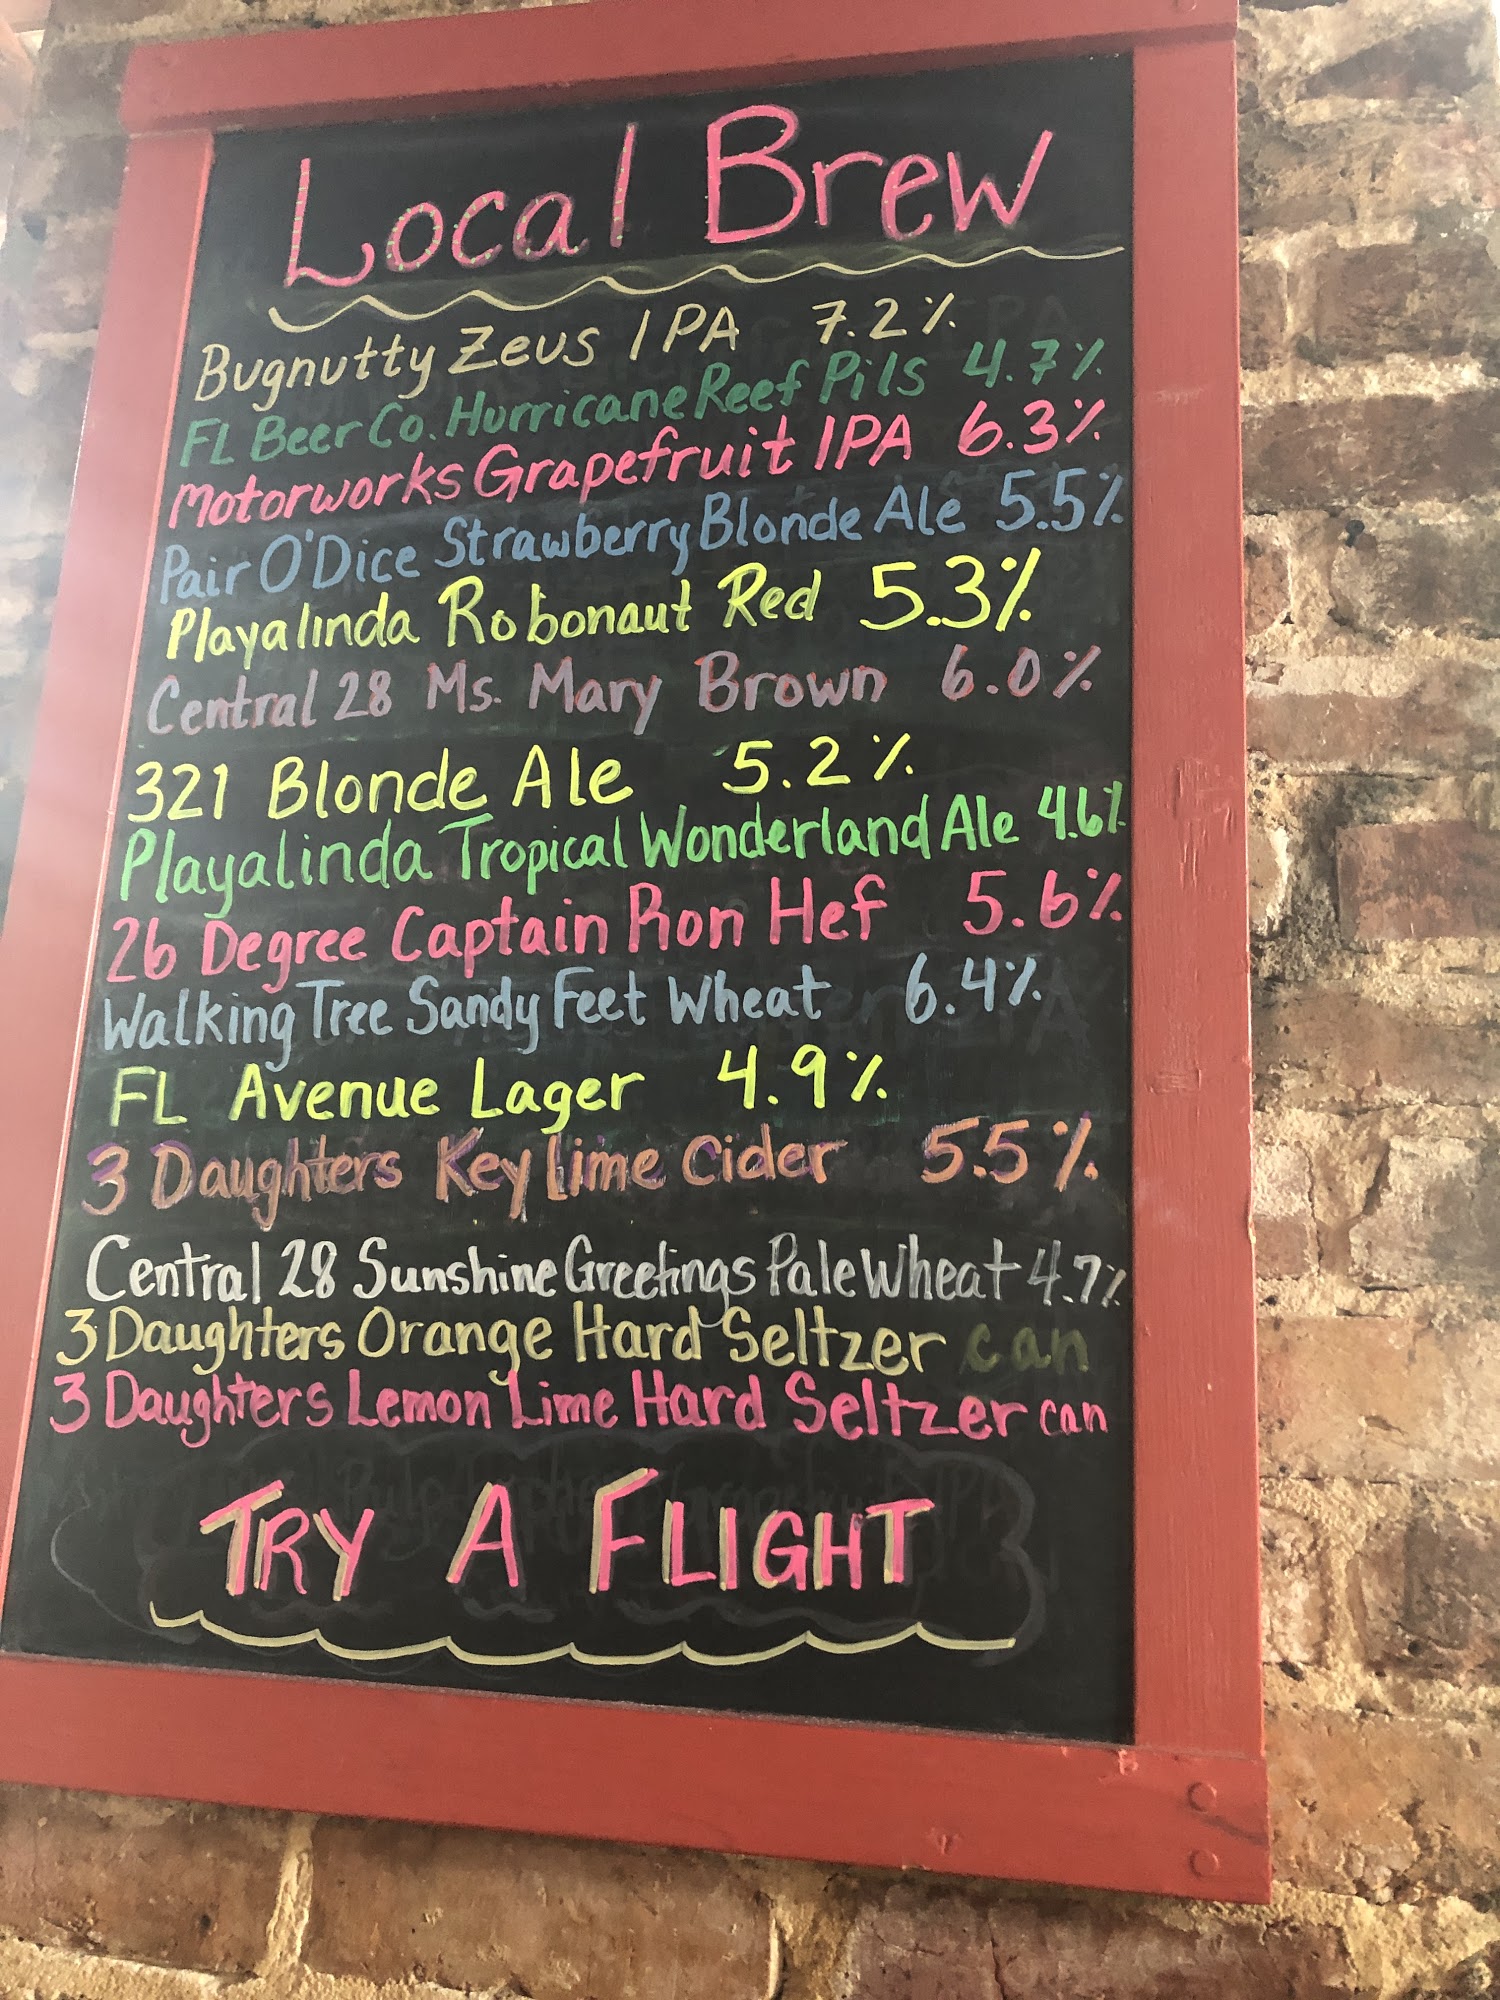 Local Brew
Bugnutty Zeus IPA 7.2%
FL Beer Co. Hurricane Reef Pils 4.7%
Motorworks Grapefruit IPA 6.3%
Pair O'Dice Strawberry Blonde Ale 5.5%
Playalinda Robonaut Red 5.3%
Central 28 Ms. Mary Brown 6.0%
321 Blonde Ale 5.2%
Playalinda Tropical Wonderland Ale 4.6%
26 Degree Captain Ron Hef 5.6%
Walking Tree Sandy Feet Wheat 6.4%
FL Avenue Lager 4.9%
3 Daughters Key Lime Cider 5.5%
Central 28 Sunshine Greetings Pale Wheat 4.7%
3 Daughters Orange Hard Seltzer can
3 Daughters Lemon Lime Hard Seltzer can
TRY A FLIGHT